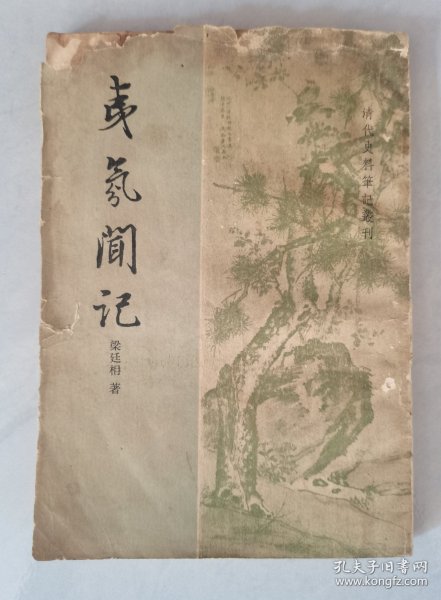 夷氛闻记
梁廷枏 著
清代史料筆記叢刊
孔夫子旧书网
www.kongfz.com